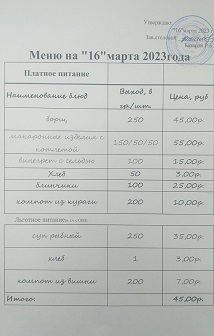 Утверждаю
"16"марта 2023 г
Зав.столовой
Меню на "16"марта 2023года
Платное питание
Наименование блюд Выход, в гр/шт. Цена, руб
борщ 250 45,00р.
макаронные изделия с котлетой 150/50/50 55,00р.
винегрет с сельдью 100 15,00р.
Хлеб 50 3,00р.
блинчики 100 25,00р.
компот из кураги 200 10,00р.
Льготное питание
суп рыбный 250 35,00р.
хлеб 1 3,00р.
компот из вишни 200 7,00р.
Итого: 45,00р.